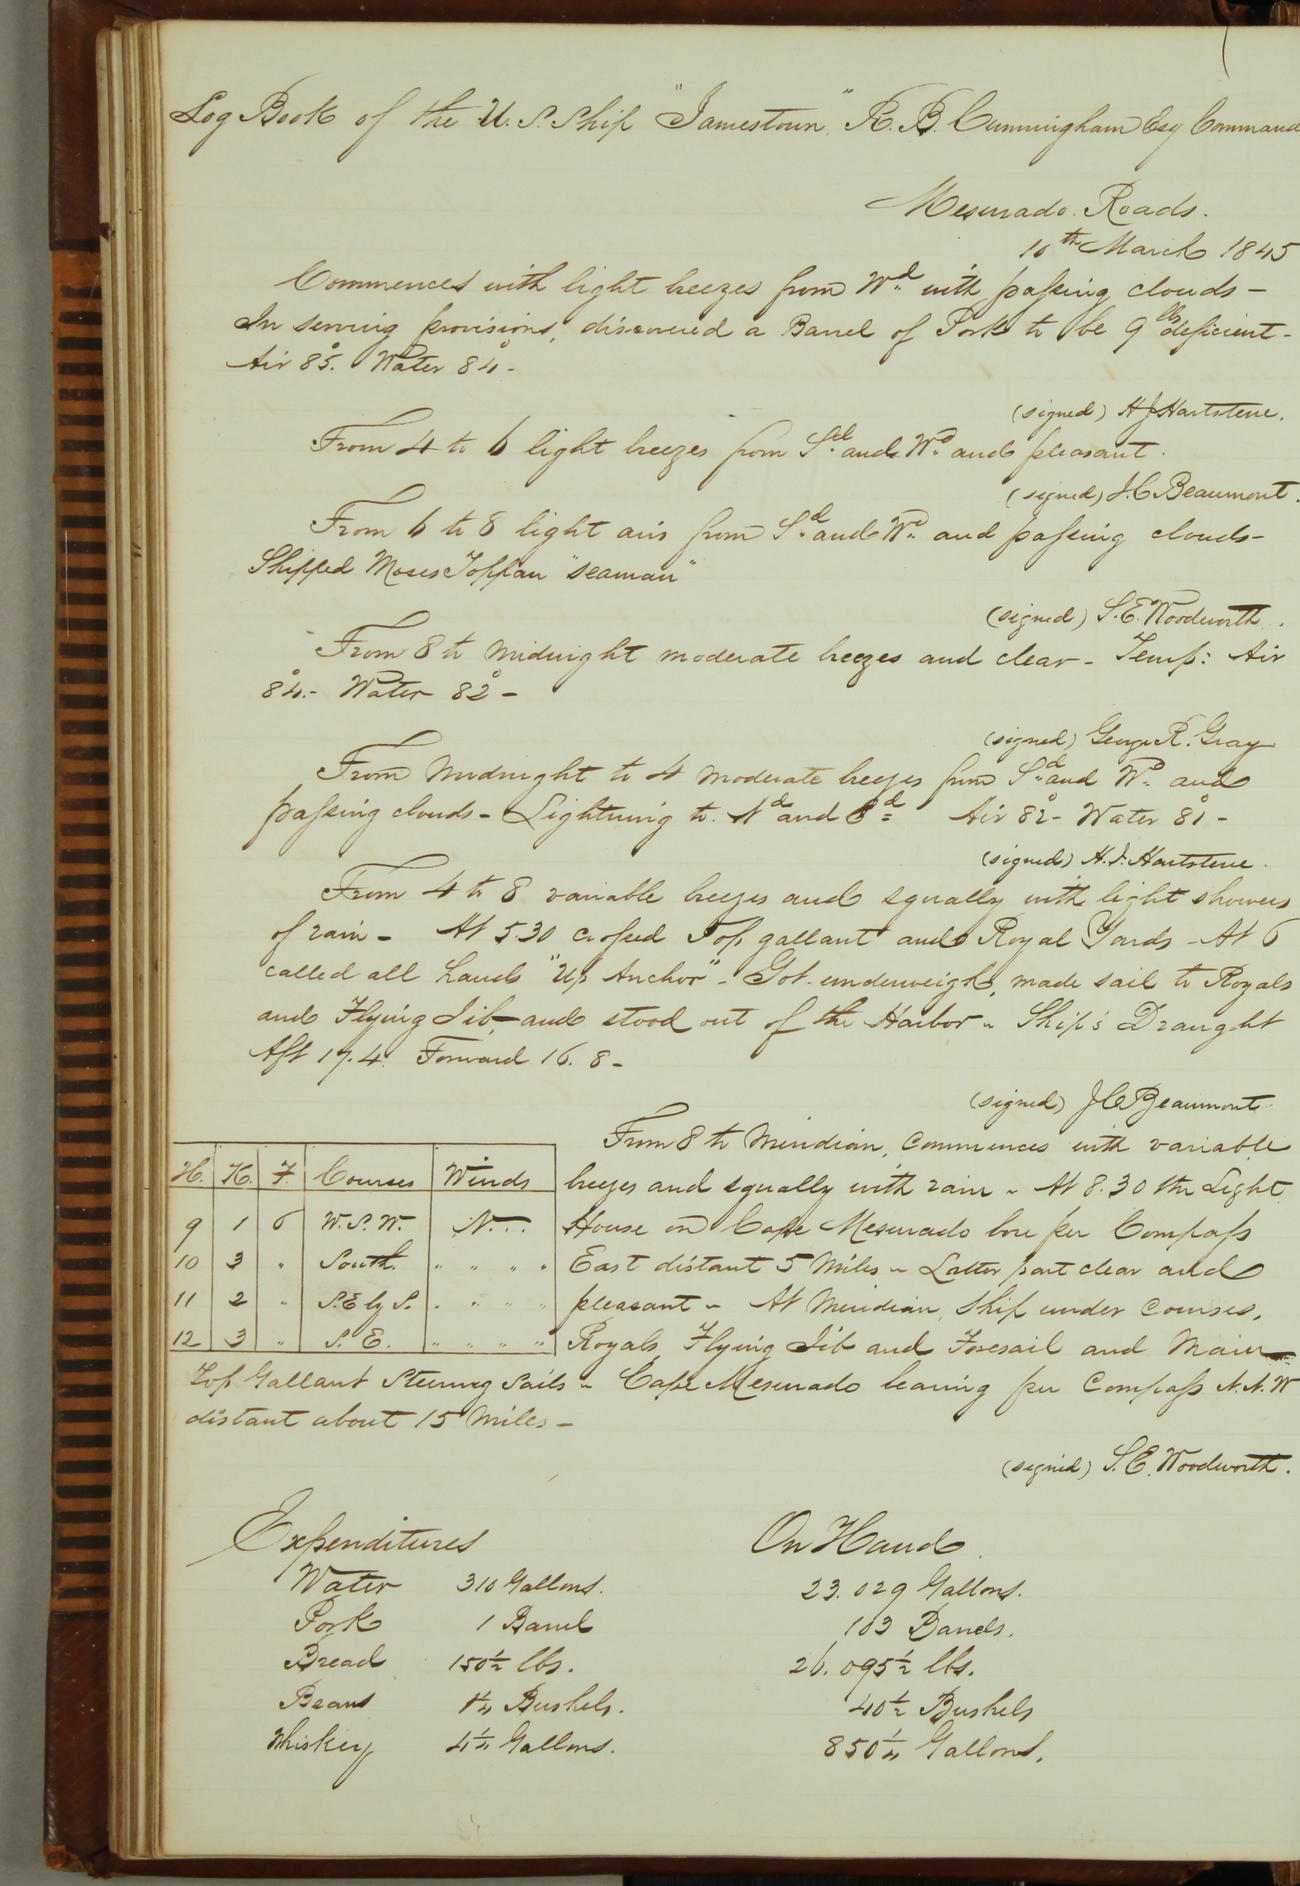 Log Book of the U. S. Ship "Jamestown" R. B. Cunningham Esq Command
Mesurado Roads.
10th March 1845
Commences with light breezes from Wd with passing clouds -
In serving provisions, discovered a Barrel of Pork to be 9 lb deficient -
Air 85°. Water 84° -
(signed) H J Hartstene.
From 4 to 6 light breezes from Sd and Wd and pleasant.
(signed) J. C Beaumont.
From 6 to 8 light airs from Sd and Wd and passing clouds -
Shipped Moses Toppan "seaman"
(signed) S. E. Woodworth.
From 8 to Midnight moderate breezes and clear - Temp: Air
84°. - Water 82° -
(signed) George R. Gray
From Midnight to 4 moderate breezes from Sd and Wd and
passing clouds - Lightning to Nd and Ed Air 82° - Water 81° -
(signed) H. J. Hartstene.
From 4 to 8 variable breezes and squally with light showers
of rain - At 5.30 crossed Top gallant and Royal Yards - At 6
called all hands "Up Anchor" - Got underweigh, made sail to Royals
and Flying Jib, and stood out of the Harbor - Ship's Draught
Aft 17. 4. Forward 16. 8 -
(signed) J C Beaumont.
From 8 to Meridian, Commences with variable
H. K. F. Courses Winds breezes and squally with rain - At 8.30 the Light
9 1 6 W. S. W. N... House on Cape Mesurado bore per Compass
10 3 " South. " " " " East distant 5 Miles - Latter part clear and
11 2 " S. E by S. " " " " pleasant - At Meridian, Ship under Courses,
12 3 " S. E. " " " " Royals, Flying Jib and Foresail and Main
Top Gallant Steering Sails - Cape Mesurado bearing per Compass N. N. W
distant about 15 Miles -
(signed) S. E. Woodworth.
Expenditures On Hand
Water 310 Gallons. 23.029 Gallons.
Pork 1 Barrel 103 Barrels.
Bread 150 1/2 lbs. 26.095 1/2 lbs.
Beans Bushels. 40 1/2 Bushels
Whiskey 4 1/4 Gallons. 850 1/4 Gallons.